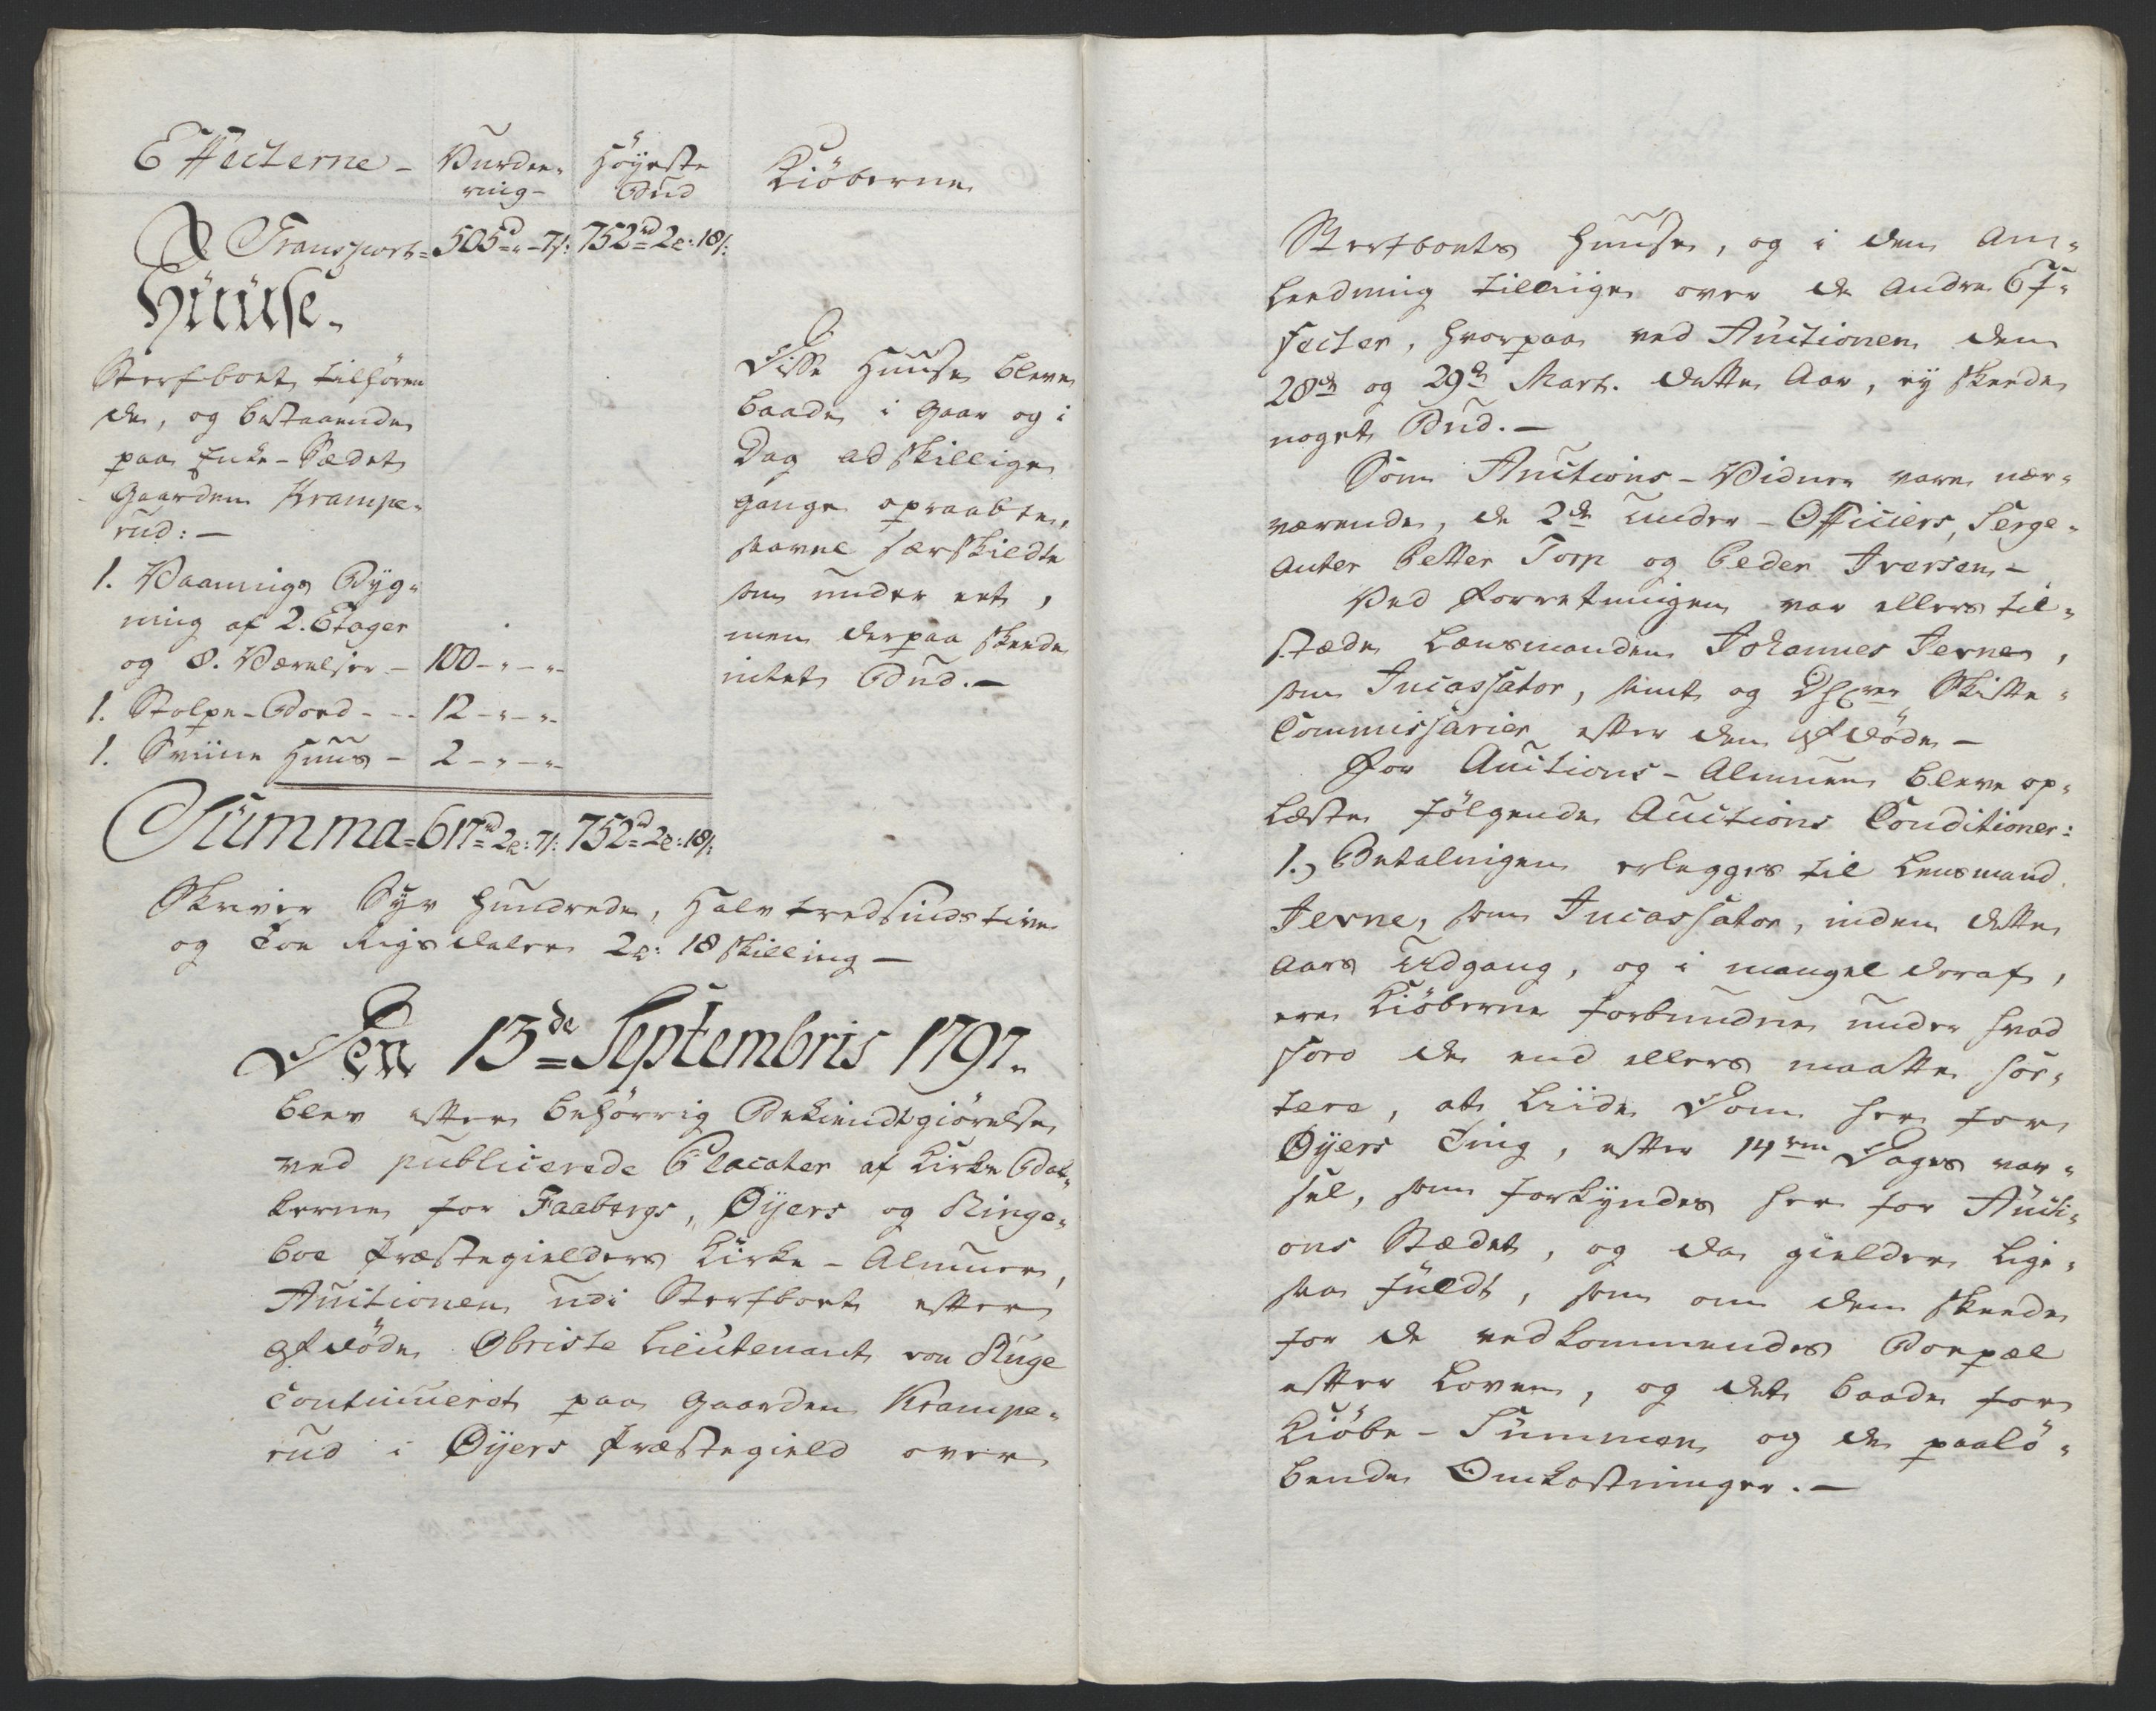 Effecterne - Vurdee- Høyeste Kiøberne
ring - Bud
Transport = 505rd „ - 7s: 752rd 2o: 18s:
Huuse.
Sterfboet tilhøren
de, og bestaaende
paa Enke-Sædet
Gaarden Krampe-
rud: -
1. Vaanings Byg-
ning af 2. Etager
og 8. Værelser - 100 - „ - „ -
1. Stolpe-Boed - - 12 - „ - „ -
1. Sviine Huus - 2 - „ - „ -
Disse Huuse bleve
baade i Gaar og i
Dag adskillige
gange opraabte,
saavel særskildte
som under eet,
men derpaa skeede
intet Bud. -
Summa = 617rd 2o: 7s: 752rd 2o: 18s:
Skriver Syv hundrede, Halvtredsindstive
og Toe Rigsdaler 2o: 18 skilling -
Den 13de Septembris 1797.
blev efter behørrig Bekiendtgiørelse
ved publicerede Placater af Kirke Bak-
kerne for Faabergs, Øyers og Ringe-
boe Præstegielders Kirke-Almuer,
Auctionen udi Sterfboet efter
afdøde Obriste Lieutenant von Ruge
Continueret paa Gaarden Krampe-
rud i Øyers Præstegield over
Sterfboets Huuse, og i den An-
leedning tilliige over de andre Ef-
fecter, hvorpaa ved Auctionen den
28de og 29de Mart. dette Aar, ey skeede
noget Bud. -
Som Auctions-Vidner vare nær-
værende, de 2de Under-Officiers, Serge-
anter Petter Torp og Peder Iversen -
Ved Forretningen var ellers til-
stæde Lensmanden Johannes Jevne,
som Incassator, samt og Dhrer Skifte-
Commissarier efter den afdøde -
For Auctions-Almuen bleve op-
læste følgende Auctions Conditioner:
1.) Betalningen erlegges til Lensmand
Jevne, som Incassator, inden dette
Aars Udgang, og i mangel deraf,
ere Kiøberne forbundne under hvad
Foro de end ellers maatte sor-
tere, at liide Dom her for
Øyers Ting, efter 14ten Dages var-
sel, som forkyndes her for Aucti-
ons Stædet, og da gielder lige-
saa fuldt, som om den skeede
for de vedkommendes Boepæl
efter Loven, og det baade for
Kiøbe-Summen og de paalø-
bende Omkostninger. -